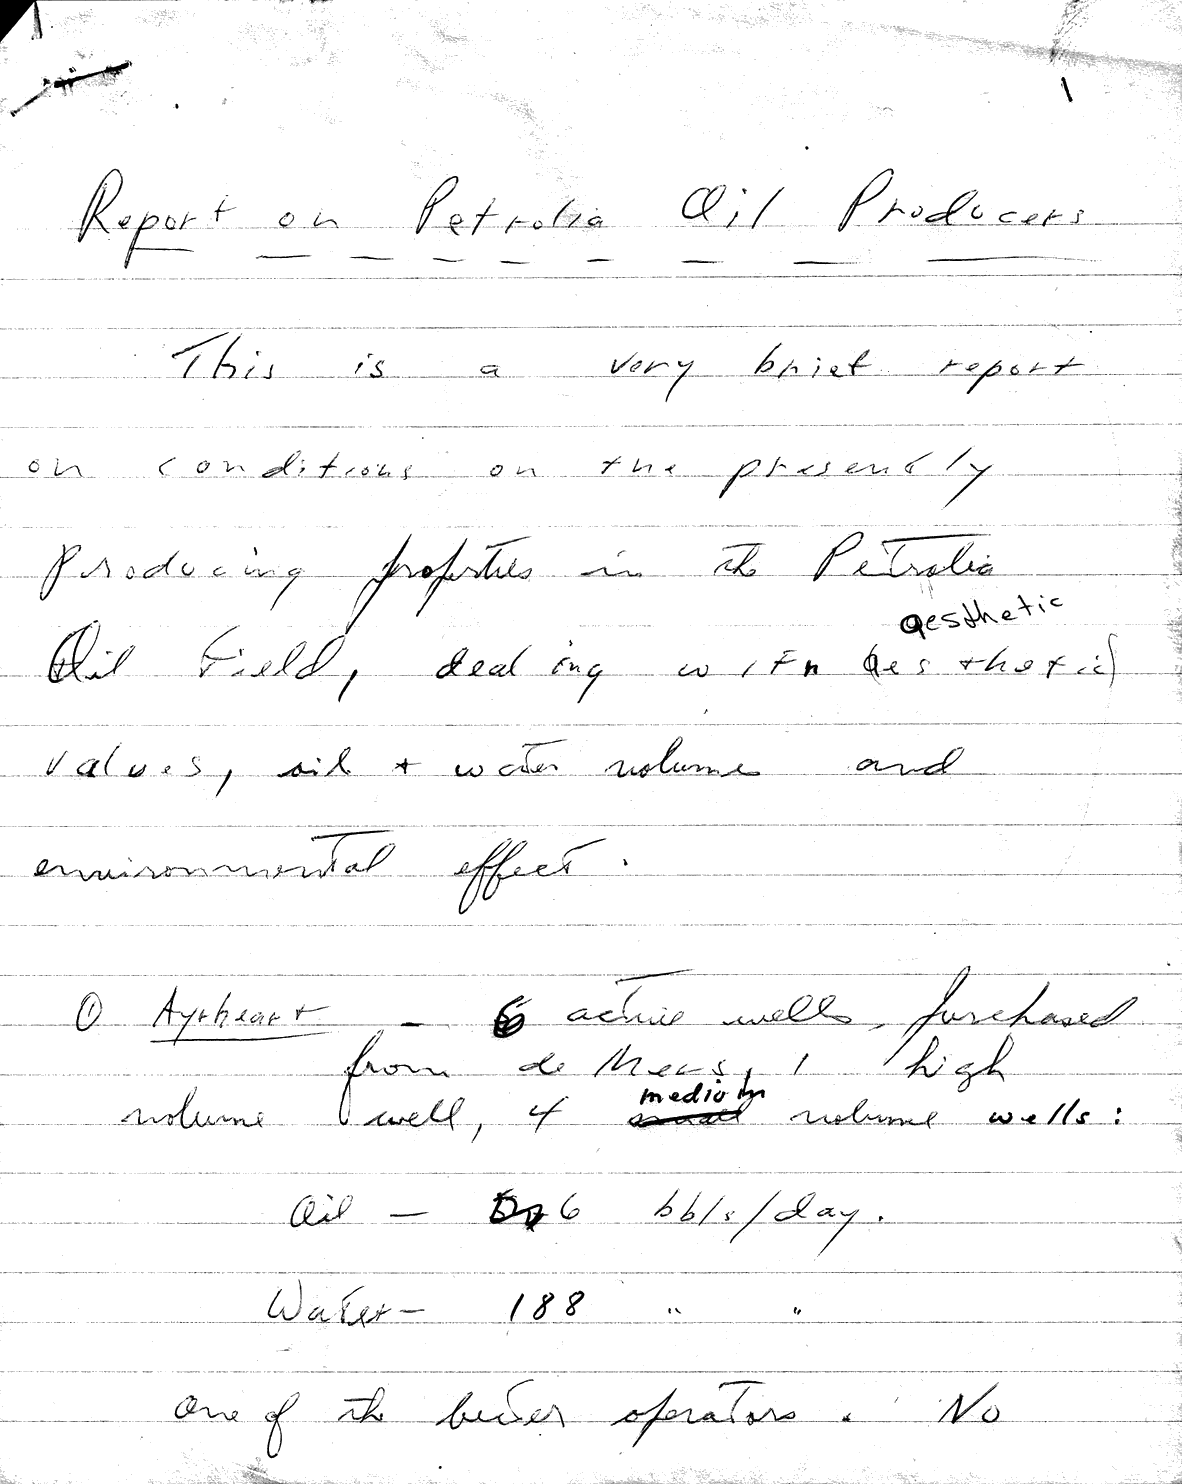 Report on Petrolia Oil Producers
This is a very brief report
on conditions on the presently
Producing properties in the Petrolia
aesthetic
Oil Field, dealing with (aesthetic)
values, oil + water volumes and
environmental effect.
① Ayrheart - active wells, purchased
from de Meus, 1 high
medium
volume well, 4 small volume wells:
Oil - 6 bbls/day.
Water- 188 " "
One of the better operators. No